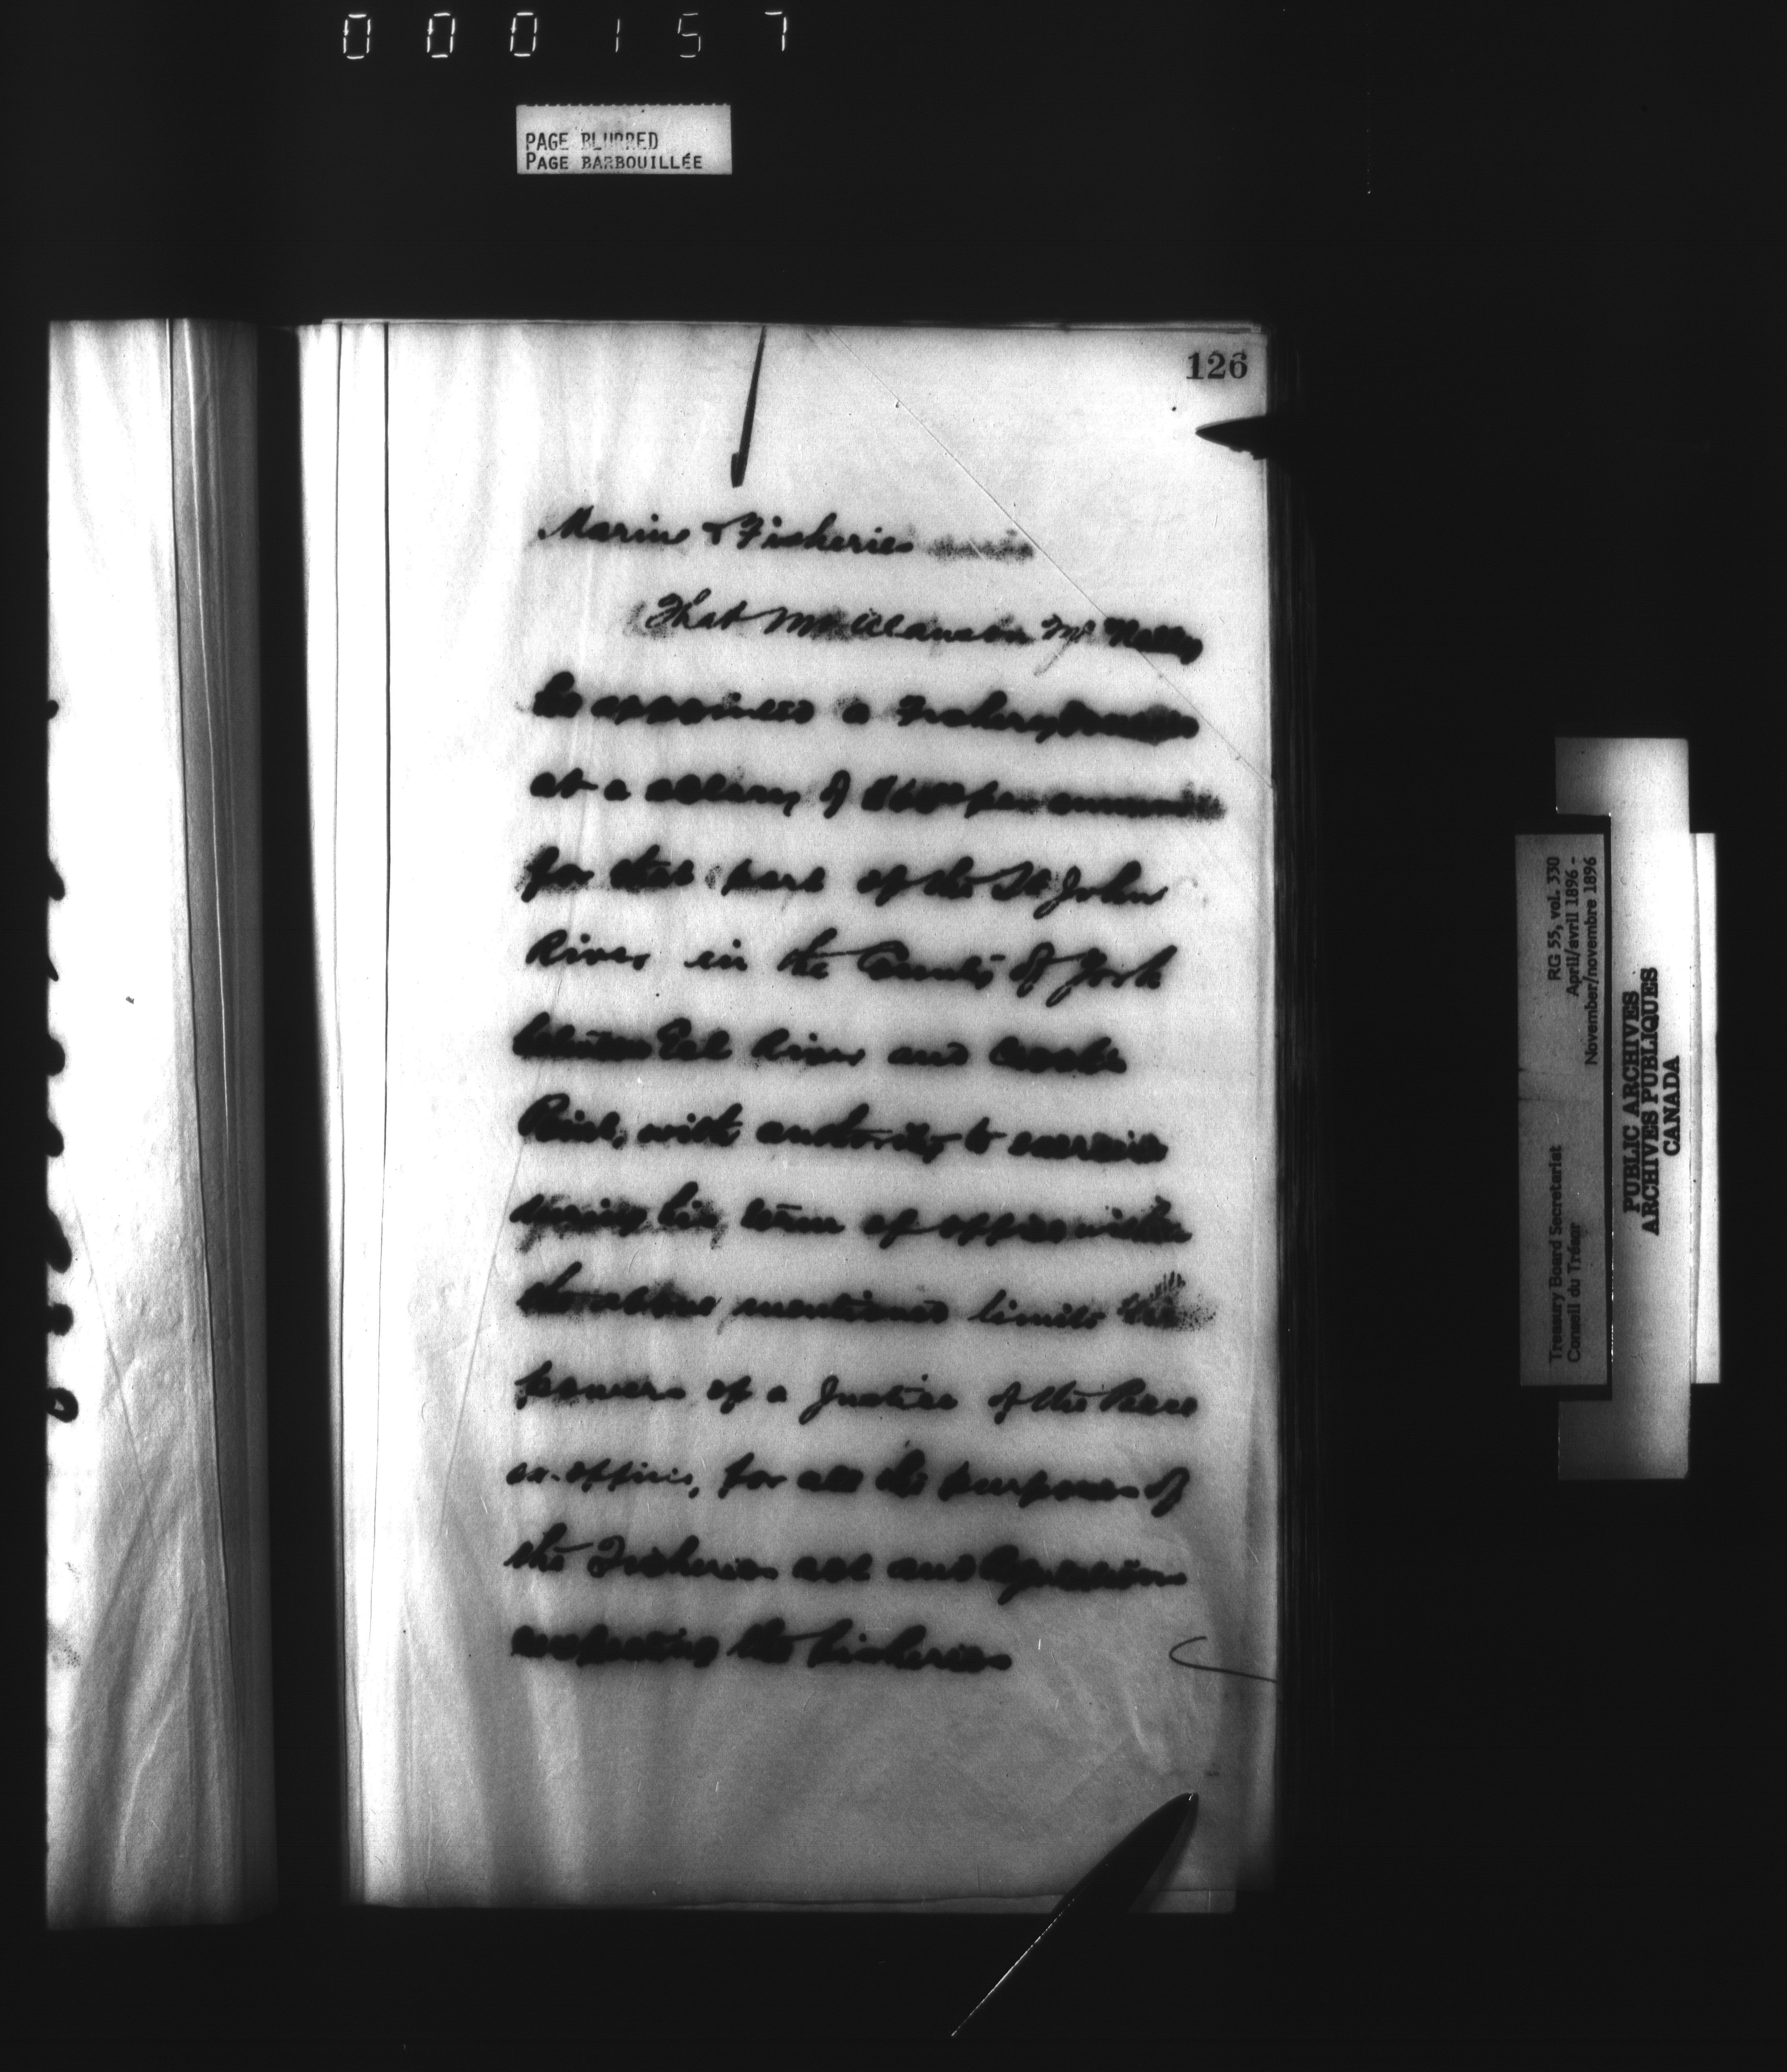 000157
PAGE BLURRED
PAGE BARBOUILLÉE
126
Marine & Fisheries
That Mr Alanson Mc Nally
be appointed a Fishery
at a salary of per annum
for that part of the St John
River in the County of York
between Eel River and
with authority to exercise
during his term of office within
the above mentioned limits the
powers of a Justice of the Peace
ex-officio, for all the purposes of
the Fisheries act and Regulations
respecting the fisheries
RG 55, vol. 330
April/avril 1896 -
November/novembre 1896
Treasury Board Secretariat
Conseil du Trésor
PUBLIC ARCHIVES
ARCHIVES PUBLIQUES
CANADA